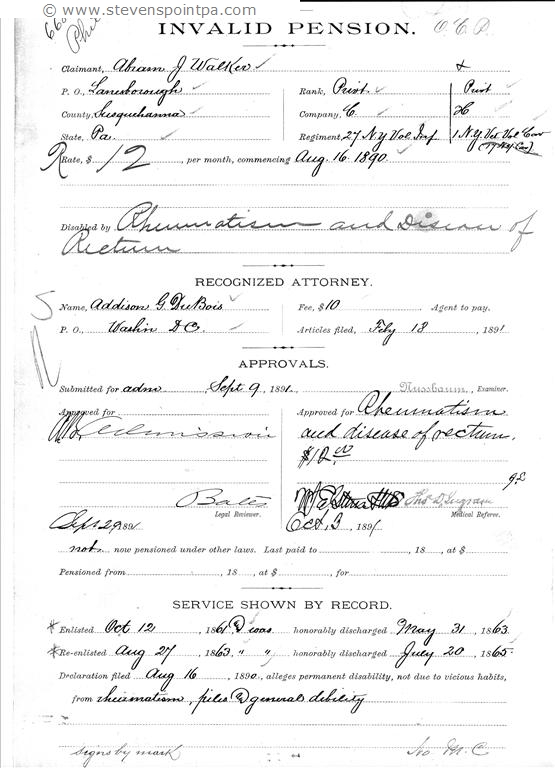 © www.stevenspointpa.com
INVALID PENSION. O.C.P.
Claimant, Abram J Walker
P. O., Lanesborough Rank, Privt. Privt
County, Susquehanna Company, C. H
State, Pa. Regiment, 27 N.Y Vol Inf. 1 N.Y. Vet Vol Cav
Rate, $ 12 per month, commencing Aug. 16. 1890.
Disabled by Rheumatism and Disease of
Rectum
RECOGNIZED ATTORNEY.
Name, Addison G. DuBois Fee, $ 10 Agent to pay.
P. O., Washn D C. Articles filed, Feby 18, 1891
APPROVALS.
Submitted for adm Sept 9, 1891. Nussbaum, Examiner.
Approved for Approved for Rheumatism
Admission and disease of rectum.
$12.00
Bates Thos D. Ingram
Legal Reviewer. Medical Referee.
Sept 29 1891 Oct, 3, 1891
not now pensioned under other laws. Last paid to , 18 , at $
Pensioned from , 18 , at $ , for
SERVICE SHOWN BY RECORD.
* Enlisted Oct 12, 1861 & was honorably discharged May 31, 1863.
* Re-enlisted Aug 27 1863, " " honorably discharged July 20 1865.
Declaration filed Aug 16, 1890, alleges permanent disability, not due to vicious habits,
from rheumatism, piles & general debility
signs by mark Ino. M. C